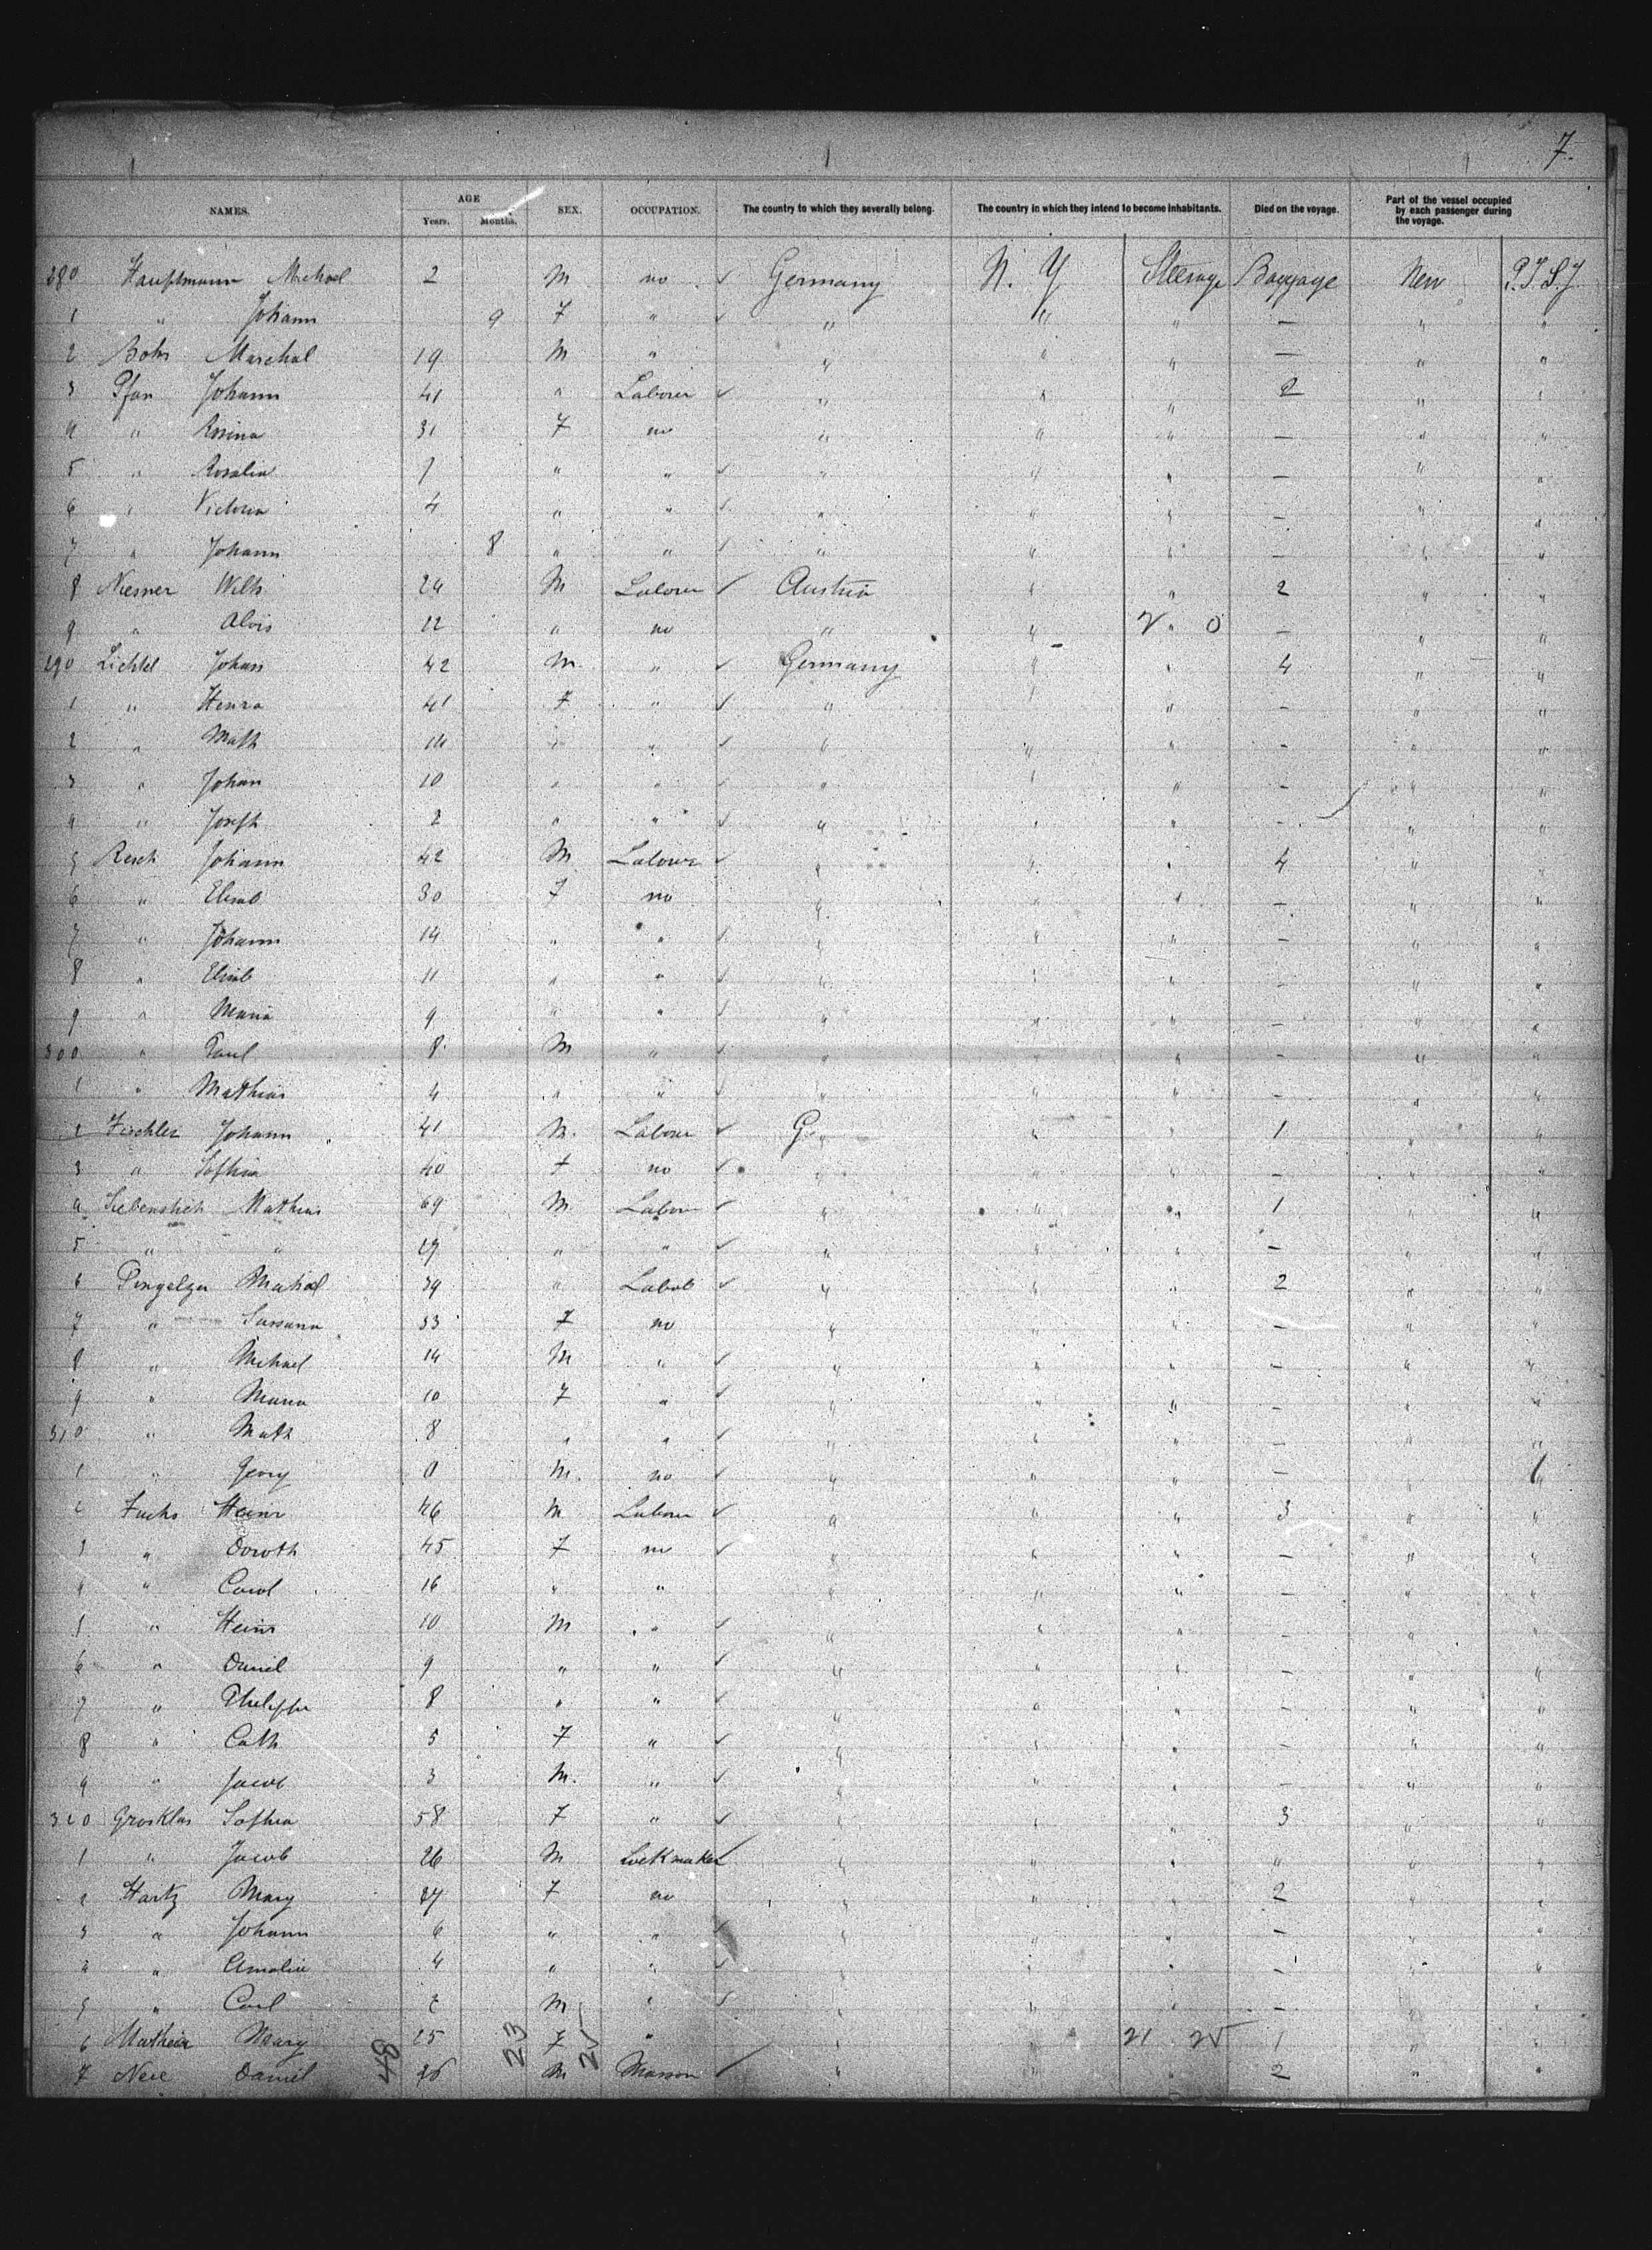 7.
NAMES. AGE Years. Months. SEX. OCCUPATION. The country to which they severally belong. The country in which they intend to become inhabitants. Died on the voyage. Part of the vessel occupied by each passenger during the voyage.
280 Hauptmann Michael 2 M no ✓ Germany N. Y Steerage Baggage New P.T.S.J.
1 " Johann 9 F " ✓ " " " — " "
2 Bohr Marchal 19 M " " " " — " "
3 Pfan Johann 41 " Laborer ✓ " " " 2 " "
4 " Rosina 31 F no " " " — " "
5 " Rosalia 7 " " ✓ " " " — " "
6 " Victoria 4 " " ✓ " " " — " "
7 " Johann 8 " " ✓ " " " — " "
8 Niesner Wilh 24 M Laborer ✓ Austria " " 2 " "
9 " Alois 22 " no " " 2 " 0 — " "
290 Lichtel Johan 42 M. " ✓ Germany " " 4 " "
1 " Henra 41 F " ✓ " " " — " "
2 " Math 14 " " ✓ " " " — " "
3 " Johan 10 " " ✓ " " " — " "
4 " Joseph 2 " " ✓ " " " — " "
5 Resch Johann 42 M Laborer ✓ " " " 4 " "
6 " Elisab 30 F no " " " — " "
7 " Johann 14 " " ✓ " " " — " "
8 " Elisab 11 " " ✓ " " " — " "
9 " Maria 9 " " ✓ " " " — " "
300 " Paul 8 M " ✓ " " " — " "
1 " Mathias 4 " " ✓ " " " — " "
2 Fischler Johann 41 M. Laborer ✓ G " " " 1 " "
3 " Sophia 40 F no ✓ " " " — " "
4 Siebenstich Mathias 69 M Labor ✓ " " " 1 " "
5 " " 19 " " ✓ " " " — " "
6 Michael 39 " Labob ✓ " " " 2 " "
7 " Sussana 33 F no " " " — " "
8 " Mihael 14 M " ✓ " " " — " "
9 " Maria 10 F " ✓ " " " — " "
310 " Math 8 " " ✓ " " " — " "
1 " Georg 0 M. no ✓ " " " — " "
2 Fuchs Heinr 46 M Laborer ✓ " " " 3 " "
3 " Doroth 45 F no ✓ " " " — " "
4 " Carol 16 " " " " " — " "
5 " Heinr 10 M " ✓ " " " — " "
6 " Daniel 9 " " ✓ " " " — " "
7 " Philippe 8 " " ✓ " " " — " "
8 " Cath 5 F " ✓ " " " — " "
9 " Jacob 3 M. " ✓ " " " — " "
320 Grosklas Sophia 58 F " ✓ " " " 3 " "
1 " Jacob 26 M Lockmaker ✓ " " " " " "
2 Hartz Mary 27 F no " " " 2 " "
3 " Johann 6 " " ✓ " " " — " "
4 " Amalie 4 " " ✓ " " " — " "
5 " Carl 2 M " ✓ " " " — " "
6 Matheia Mary 25 F " " " 21 25 1 " "
7 Neie Daniel 26 M Masson ✓ " " " 2 " "
48 23 25